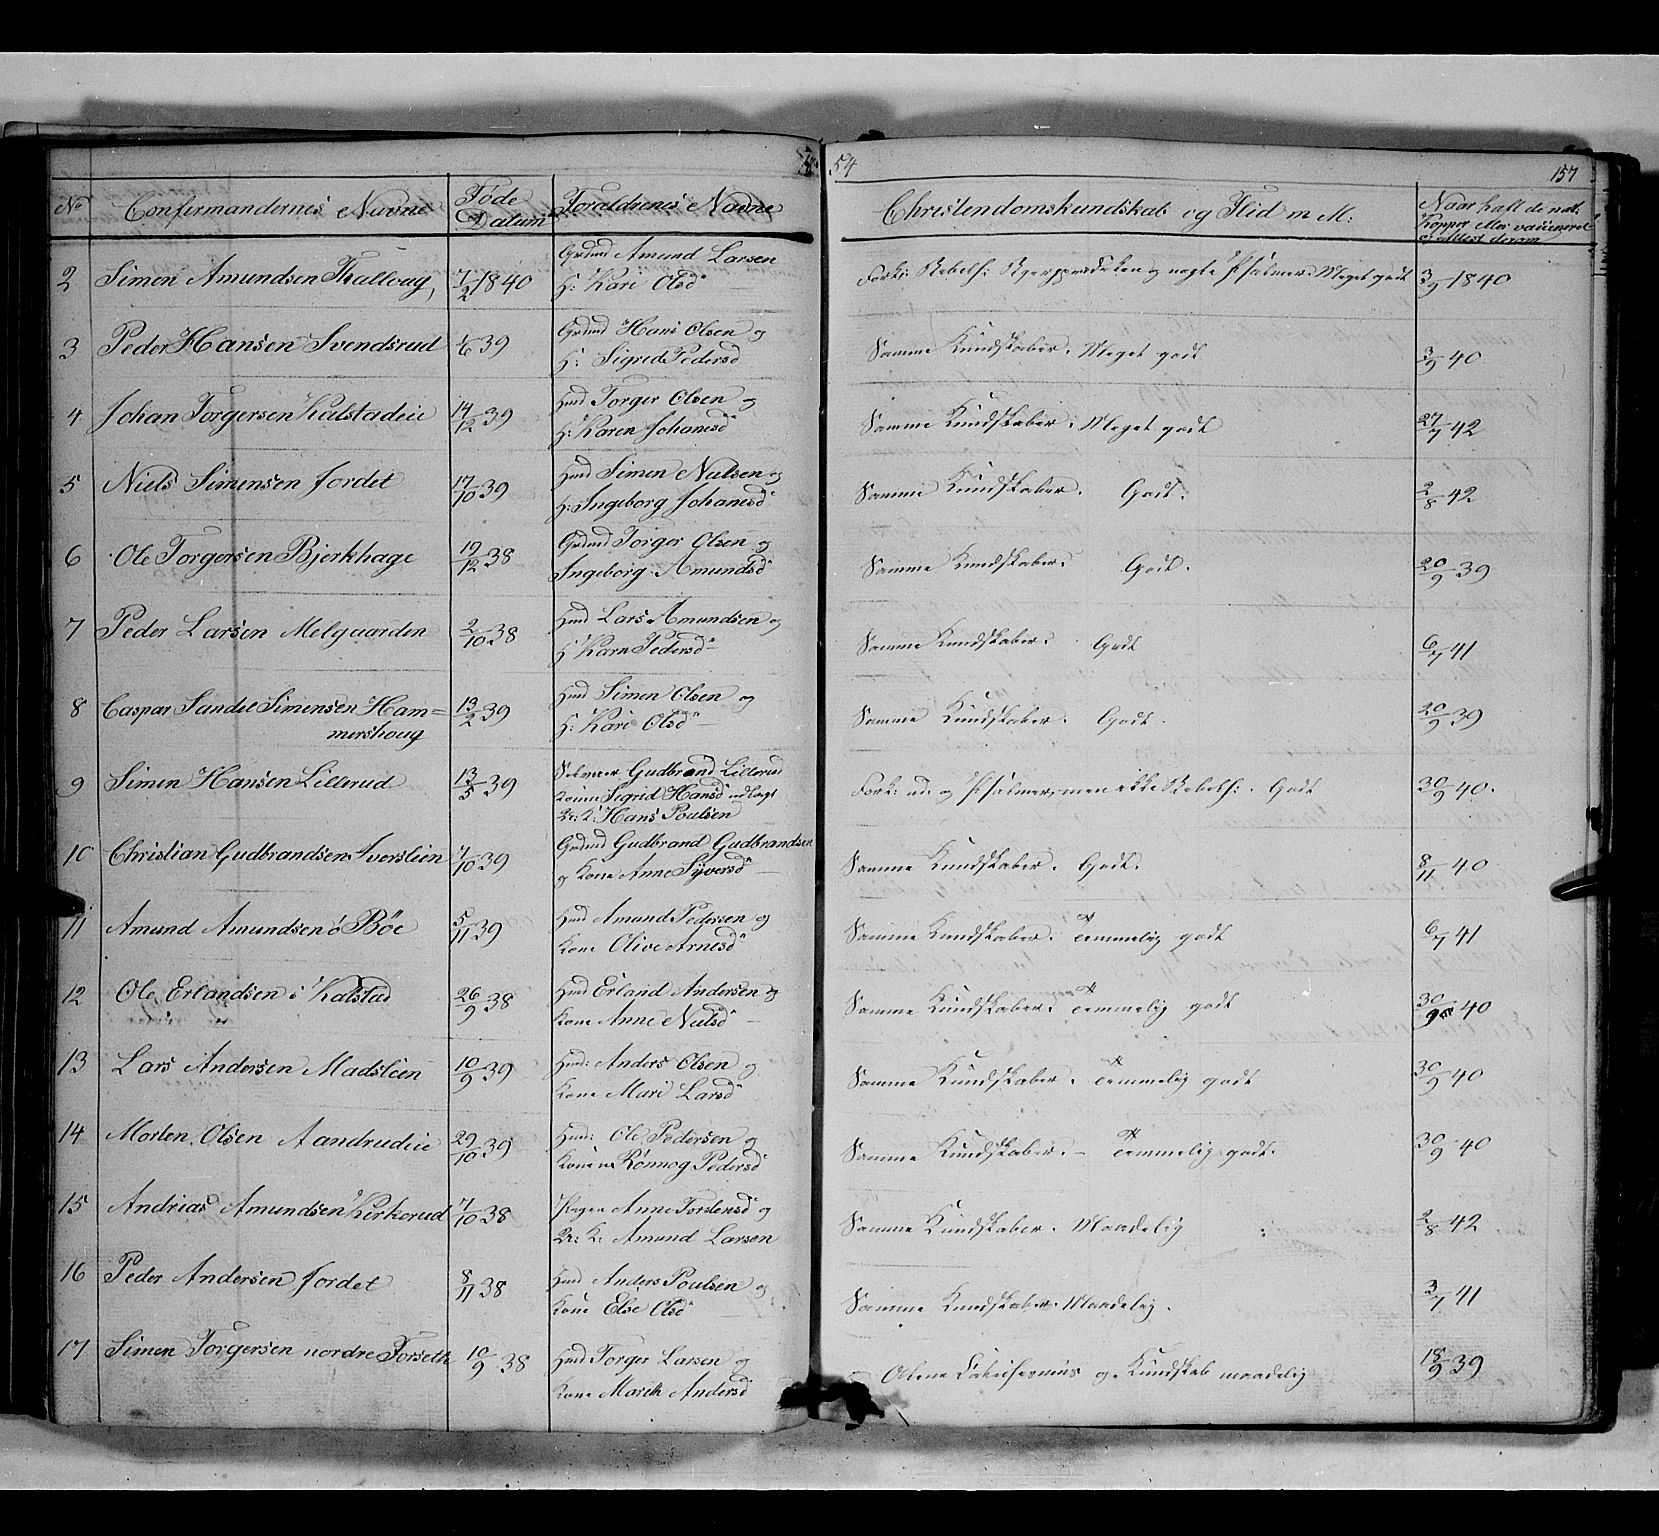 54
157
No
Confirmandernes Navne
Føde
Datum
Forældrenes Navne
Christendomskundskab og Flid m M:
Naar haft de nat:
Kopper eller vaccineret
og Attest derom
2 Simen Amundsen Thallaug, 7/2 1840
Grdmd Amund Larsen
H: Kari Olsd
Meget godt 3/9 1840
3 Peder Hansen Svendsrud 1/6 39
Grdmd Hans Olsen og
H: Sigrid Pedersd
Samme Kundskaber. Meget godt 3/9 40
4 Johan Torgersen Kalstadeie 14/12 39
Hmd Torger Olsen og
H: Karen Johanesd
Samme Kundskaber. Meget godt 27/7 42
5 Niels Simensen Jordet 17/10 39
Hmd Simen Nielsen og
H: Ingeborg Johanesd
Samme Kundskaber. Godt. 2/8 42
6 Ole Torgersen Bjerkhage 19/12 38
Grdmd Torger Olsen og
Ingeborg Amundsd
Samme Kundskaber. Godt. 20/9 39
7 Peder Larsen Melgaarden 2/10 38
Hmd Lars Amundsen og
H: Karn Pedersd
Samme Kundskaber. Godt 6/7 41
8 Caspar Sandel Simensen Ham=
mershoug 13/2 39
Hmd Simen Olsen og
H: Kari Olsd
Samme Kundskaber. Godt. 20/9 39
9 Simen Hansen Lillerud 13/5 39
Gudbrand Lillerud
Kone Sigrid Hansd udlagt
Hans Poulsen
Fork: ud. og Psalmer, men ikke Godt 30/9 40.
10 Christian Gudbrandsen Iverslien 7/10 39
Grdmd Gudbrand Gudbrandsen
og Kone Anne Syversd
Samme Kundskaber. Godt. 8/11 40
11 Amund Amundsen ó Böe 5/11 39
Hmd Amund Pedersen og
Kone Olive Arnesd
Samme Kundskaber. Temmelig godt 6/7 41
12 Ole Erlandsen i Kalstad 26/9 38
Hmd Erland Andersen og
Kone Anne Nielsd
Samme Kundskaber. Temmelig godt 30/9 40
13 Lars Andersen Madslien 10/9 39
Hmd: Anders Olsen og
Kone Mari Larsd
Samme Kundskaber. Temmelig godt 30/9 40
14 Morten Olsen Aandrudeie 29/10 39
Hmd: Ole Pedersen og
Konen Rønnog Pedersd
Samme Kundskaber. – Temmelig godt. 30/9 40
15 Andrias Amundsen Kirkerud 7/10 38
Pigen Anne Torstensd og
Amund Larsen
Samme Kundskaber. Maadelig 2/8 42
16 Peder Andersen Jordet 8/11 38
Hmd Anders Poulsen og
Kone Else Olsd
Samme Kundskaber. Maadelig. 3/7 41
17 Simen Torgersen nordre Forseth 10/9 38
Hmd Torger Larsen og
Kone Marth Andersd
og Kundskab maadelig 18/9 39